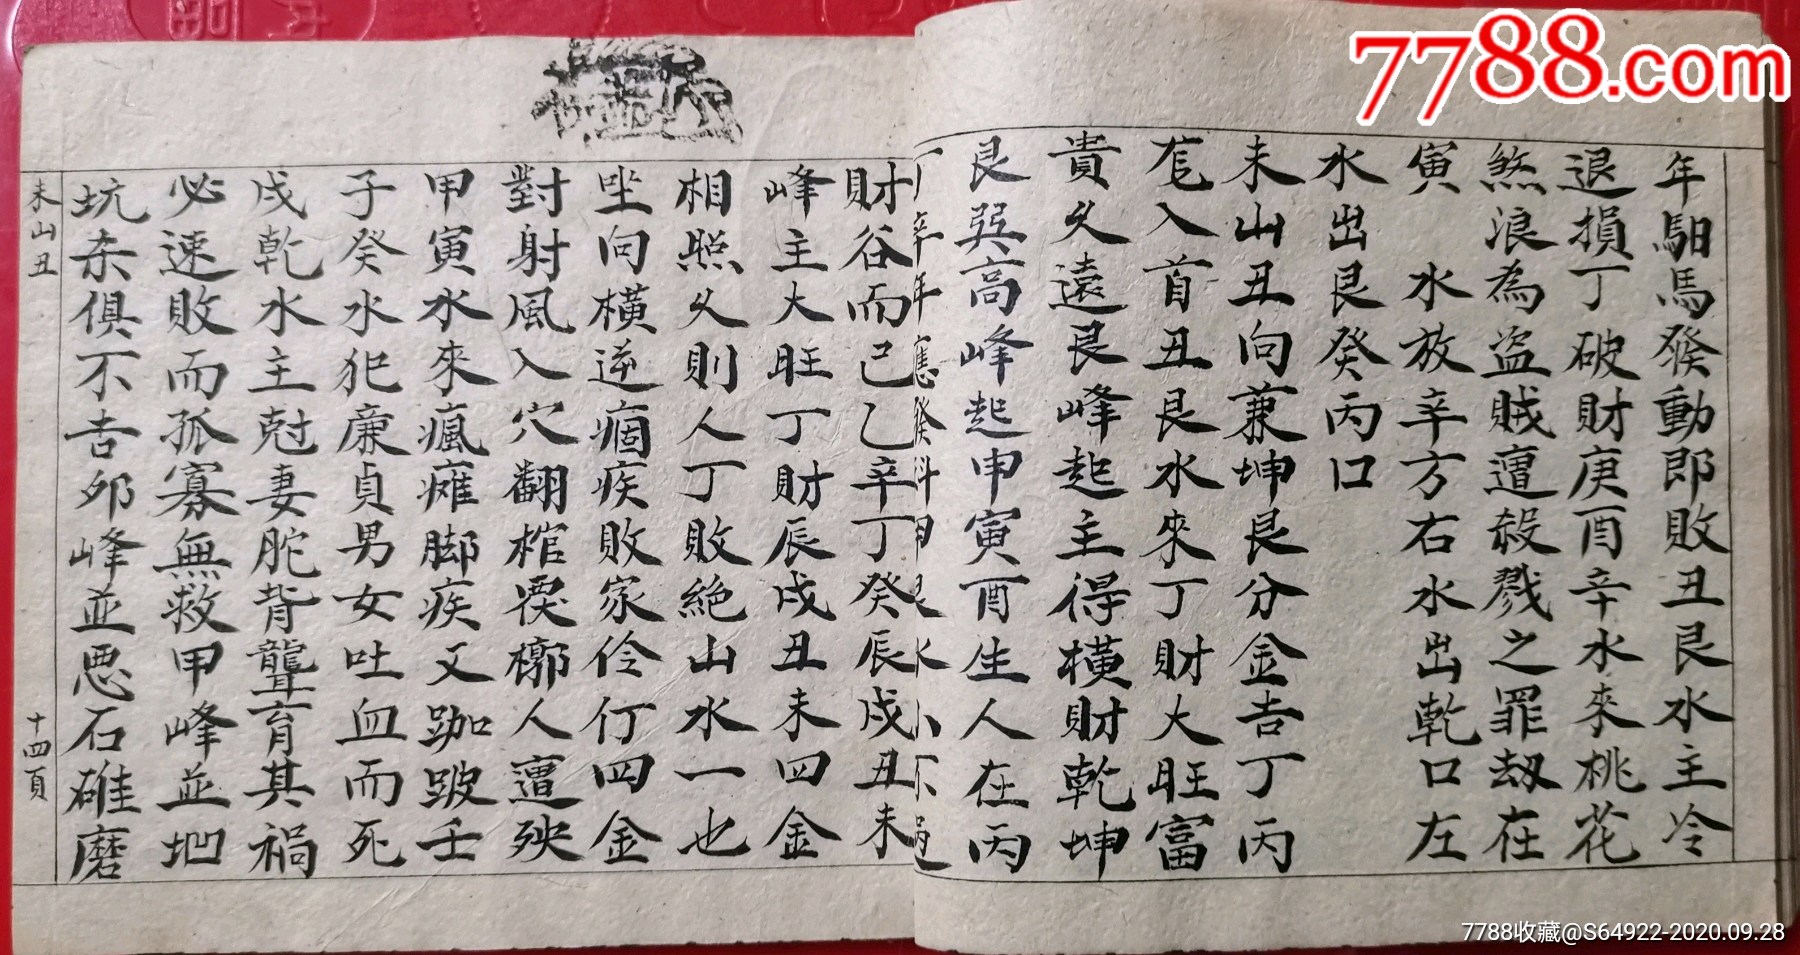 7788.com
年馹馬發動即敗丑艮水主冷
退損丁破財庚酉辛水來桃花
煞浪為盜賊遭殺戮之罪劫在
寅 水放辛方右水出乾口左
水出艮癸丙口
未山丑向兼坤艮分金吉丁丙
入首丑艮水來丁財大旺富
貴久遠艮峰起主得橫財乾坤
艮巽高峰起申寅酉生人在丙
丁辛年應發科甲艮水
財谷而己乙辛丁癸辰戍丑未
峰主大旺丁財辰戍丑未四金
相照久則人丁敗絕山水一也
坐向橫逆痼疾敗家伶仃四金
對射風入穴翻棺槨人遭殃
甲寅水來瘋癱脚疾又跏跛壬
子癸水犯廉貞男女吐血而死
戍乾水主尅妻駝背聾盲其禍
必速敗而孤寡無救甲峰並
坑杀俱不吉卯峰並惡石碓磨
未山丑
十四頁
7788收藏@S64922-2020.09.28